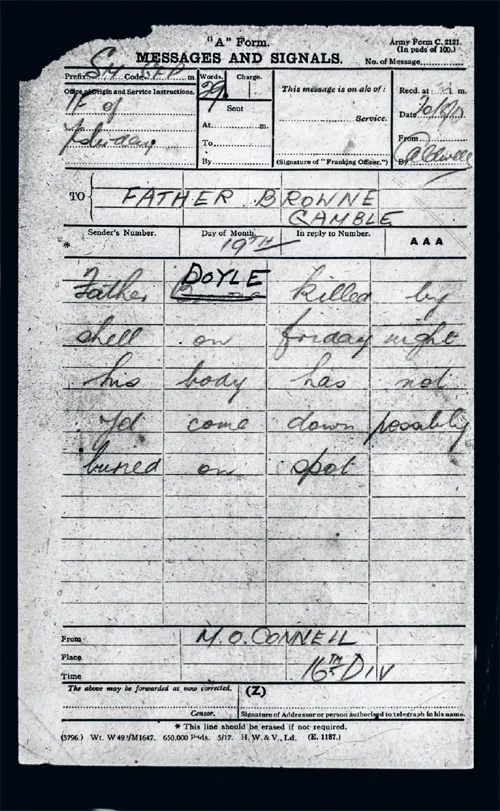 "A" Form.
Army Form C. 2121.
(In pads of 100.)
MESSAGES AND SIGNALS.
No. of Message
Prefix Code m.
Words. Charge.
29
Office of Origin and Service Instructions.
Sent
At m.
To
By
This message is on a/c of:
Service.
(Signature of "Franking Officer.")
Recd. at m.
Date
From
By
TO FATHER BROWNE
GAMBLE
Sender's Number. Day of Month. In reply to Number. AAA
* 19TH
Father DOYLE killed by
shell on friday night
his body has not
yet come down possibly
buried on spot
From M.O. CONNELL
Place 16TH DIV
Time
The above may be forwarded as now corrected. (Z)
Censor. Signature of Addressor or person authorised to telegraph in his name.
* This line should be erased if not required.
(3796.) Wt. W 492/M1647. 650,000 Pads. 5/17. H. W. & V., Ld. (E. 1187.)